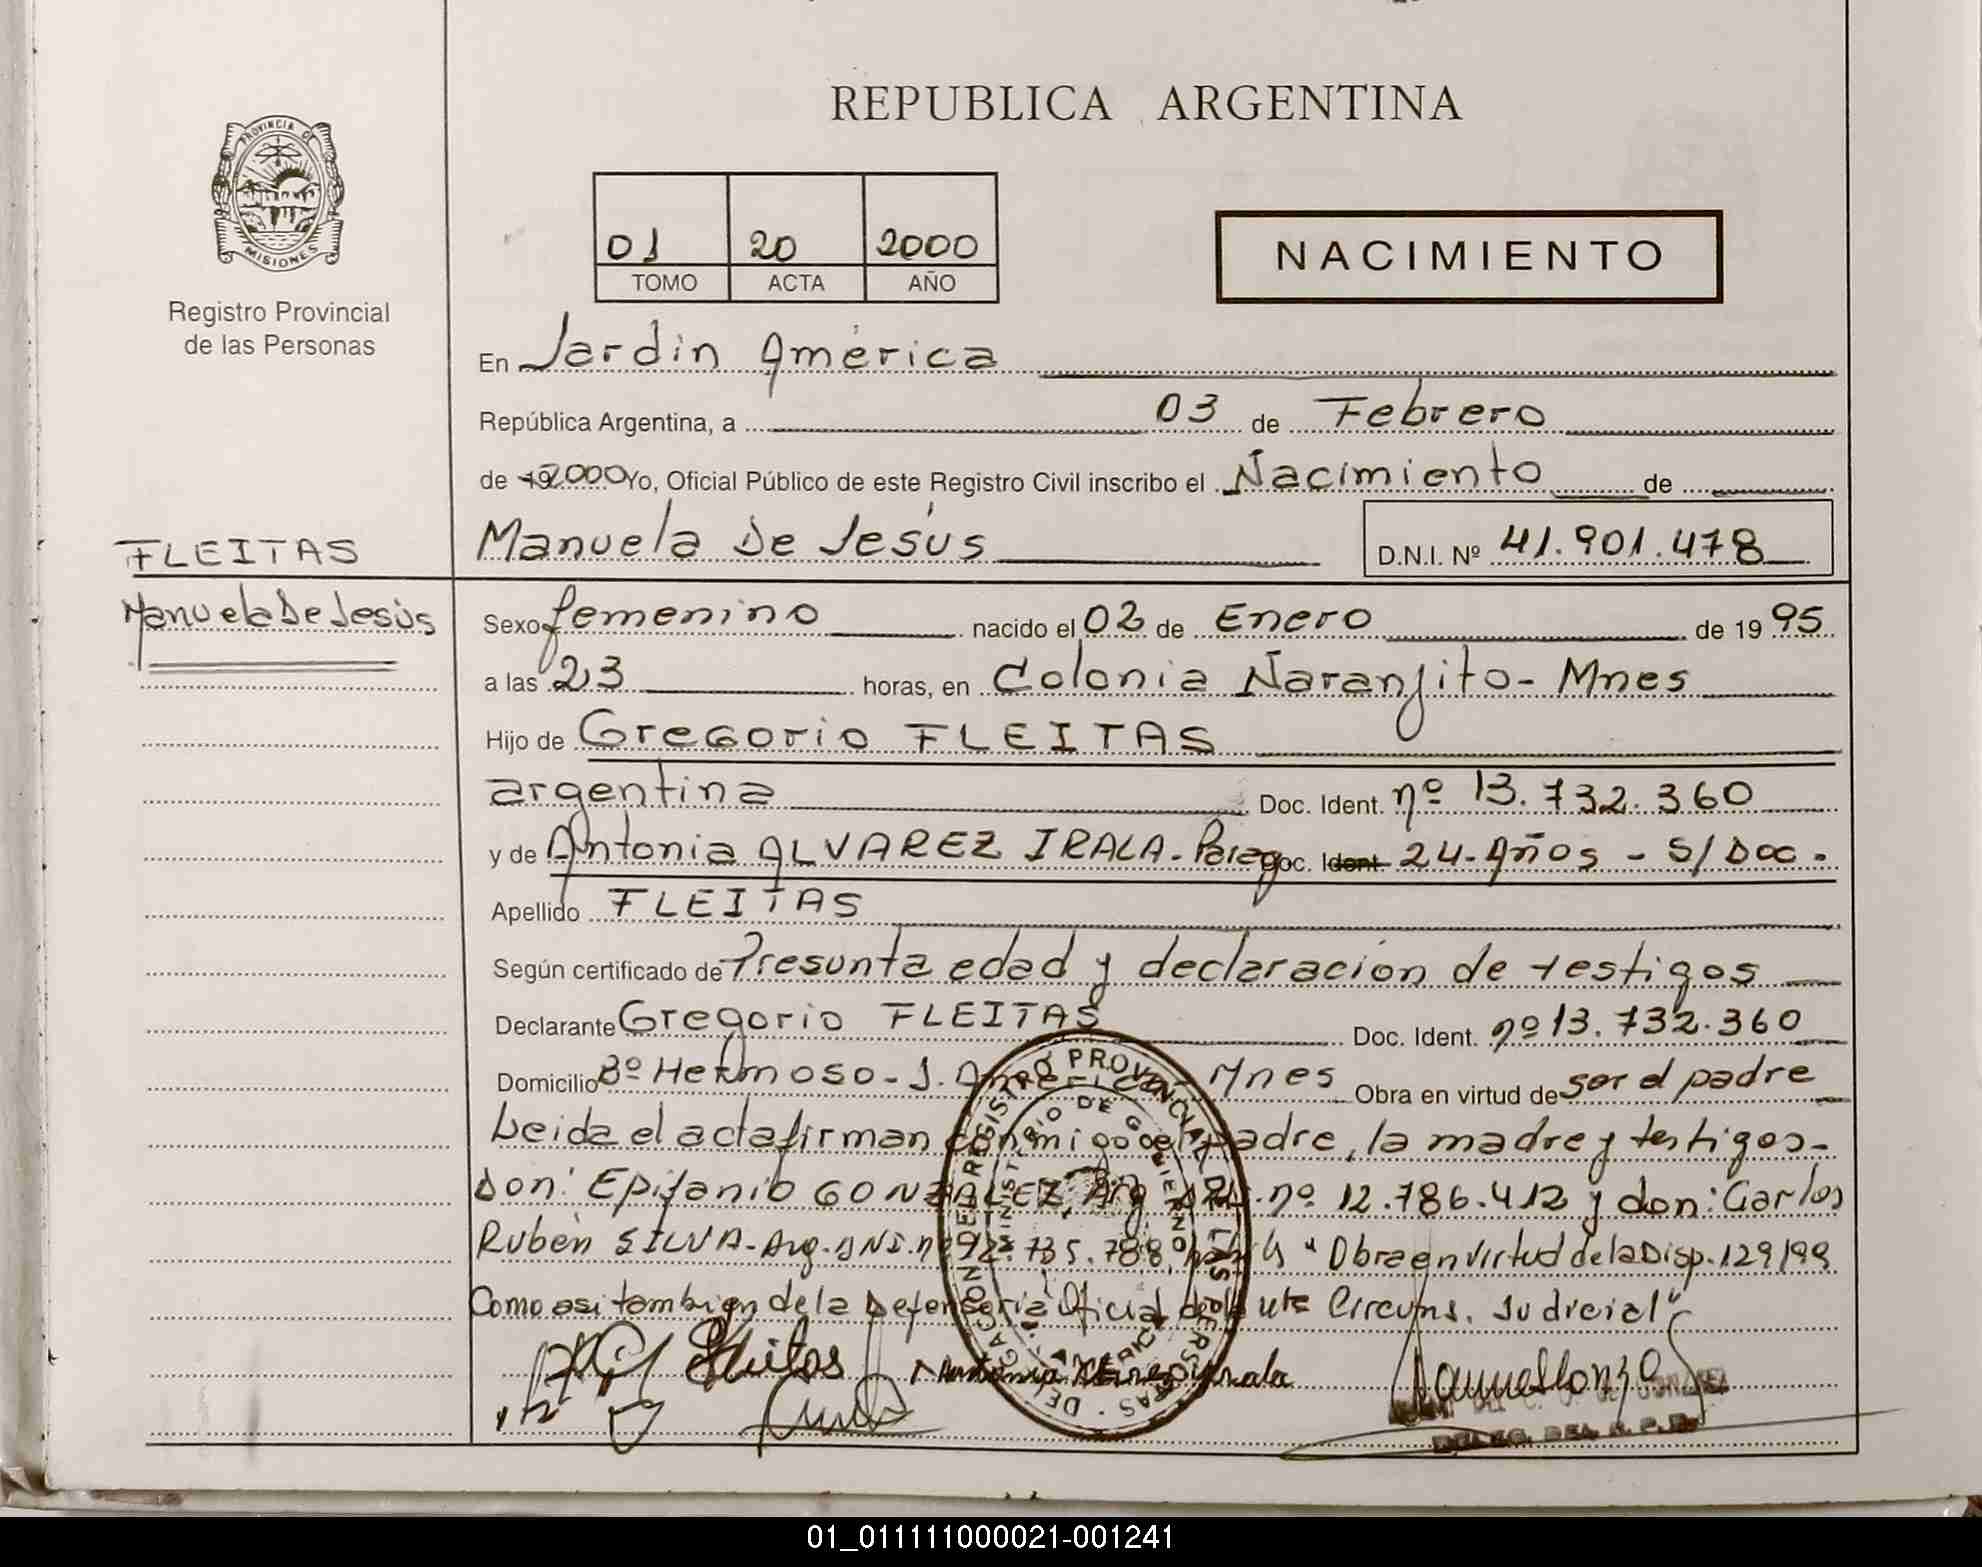 REPUBLICA ARGENTINA
PROVINCIA DE
MISIONES
Registro Provincial
de las Personas
01 20 2000
TOMO ACTA AÑO
NACIMIENTO
En Jardín América
República Argentina, a 03 de Febrero
de 192000 Yo, Oficial Público de este Registro Civil inscribo el Nacimiento de
Manuela De Jesús D.N.I. Nº 41.901.478
FLEITAS
Manuela De Jesús
Sexo femenino nacido el 02 de Enero de 1995
a las 23 horas, en Colonia Naranjito - Mnes
Hijo de Gregorio FLEITAS
argentina Doc. Ident. nº 13.732.360
y de Antonia ALVAREZ IRALA - Parag Doc. Ident. 24 - Años - S/Doc.
Apellido FLEITAS
Según certificado de Presunta edad y declaración de testigos
Declarante Gregorio FLEITAS Doc. Ident. nº 13.732.360
Domicilio Bº Hermoso - J. América - Mnes Obra en virtud de ser el padre
Leida el acta firman conmigo el padre, la madre y testigos -
Don: Epifanio GONZALEZ Arg DNI. nº 12.786.412 y don: Carlos
Rubén SILVA - Arg. DNI. nº 12.735.788 "Obra en Virtud de la Disp. 129/99
Como asi tambien de la Defensoria Oficial de la Circuns. Judicial"
Fleitas Antonia Irala
REGISTRO PROVINCIAL DE LAS PERSONAS · DELEGACION
MINISTERIO DE GOBIERNO
01_011111000021-001241